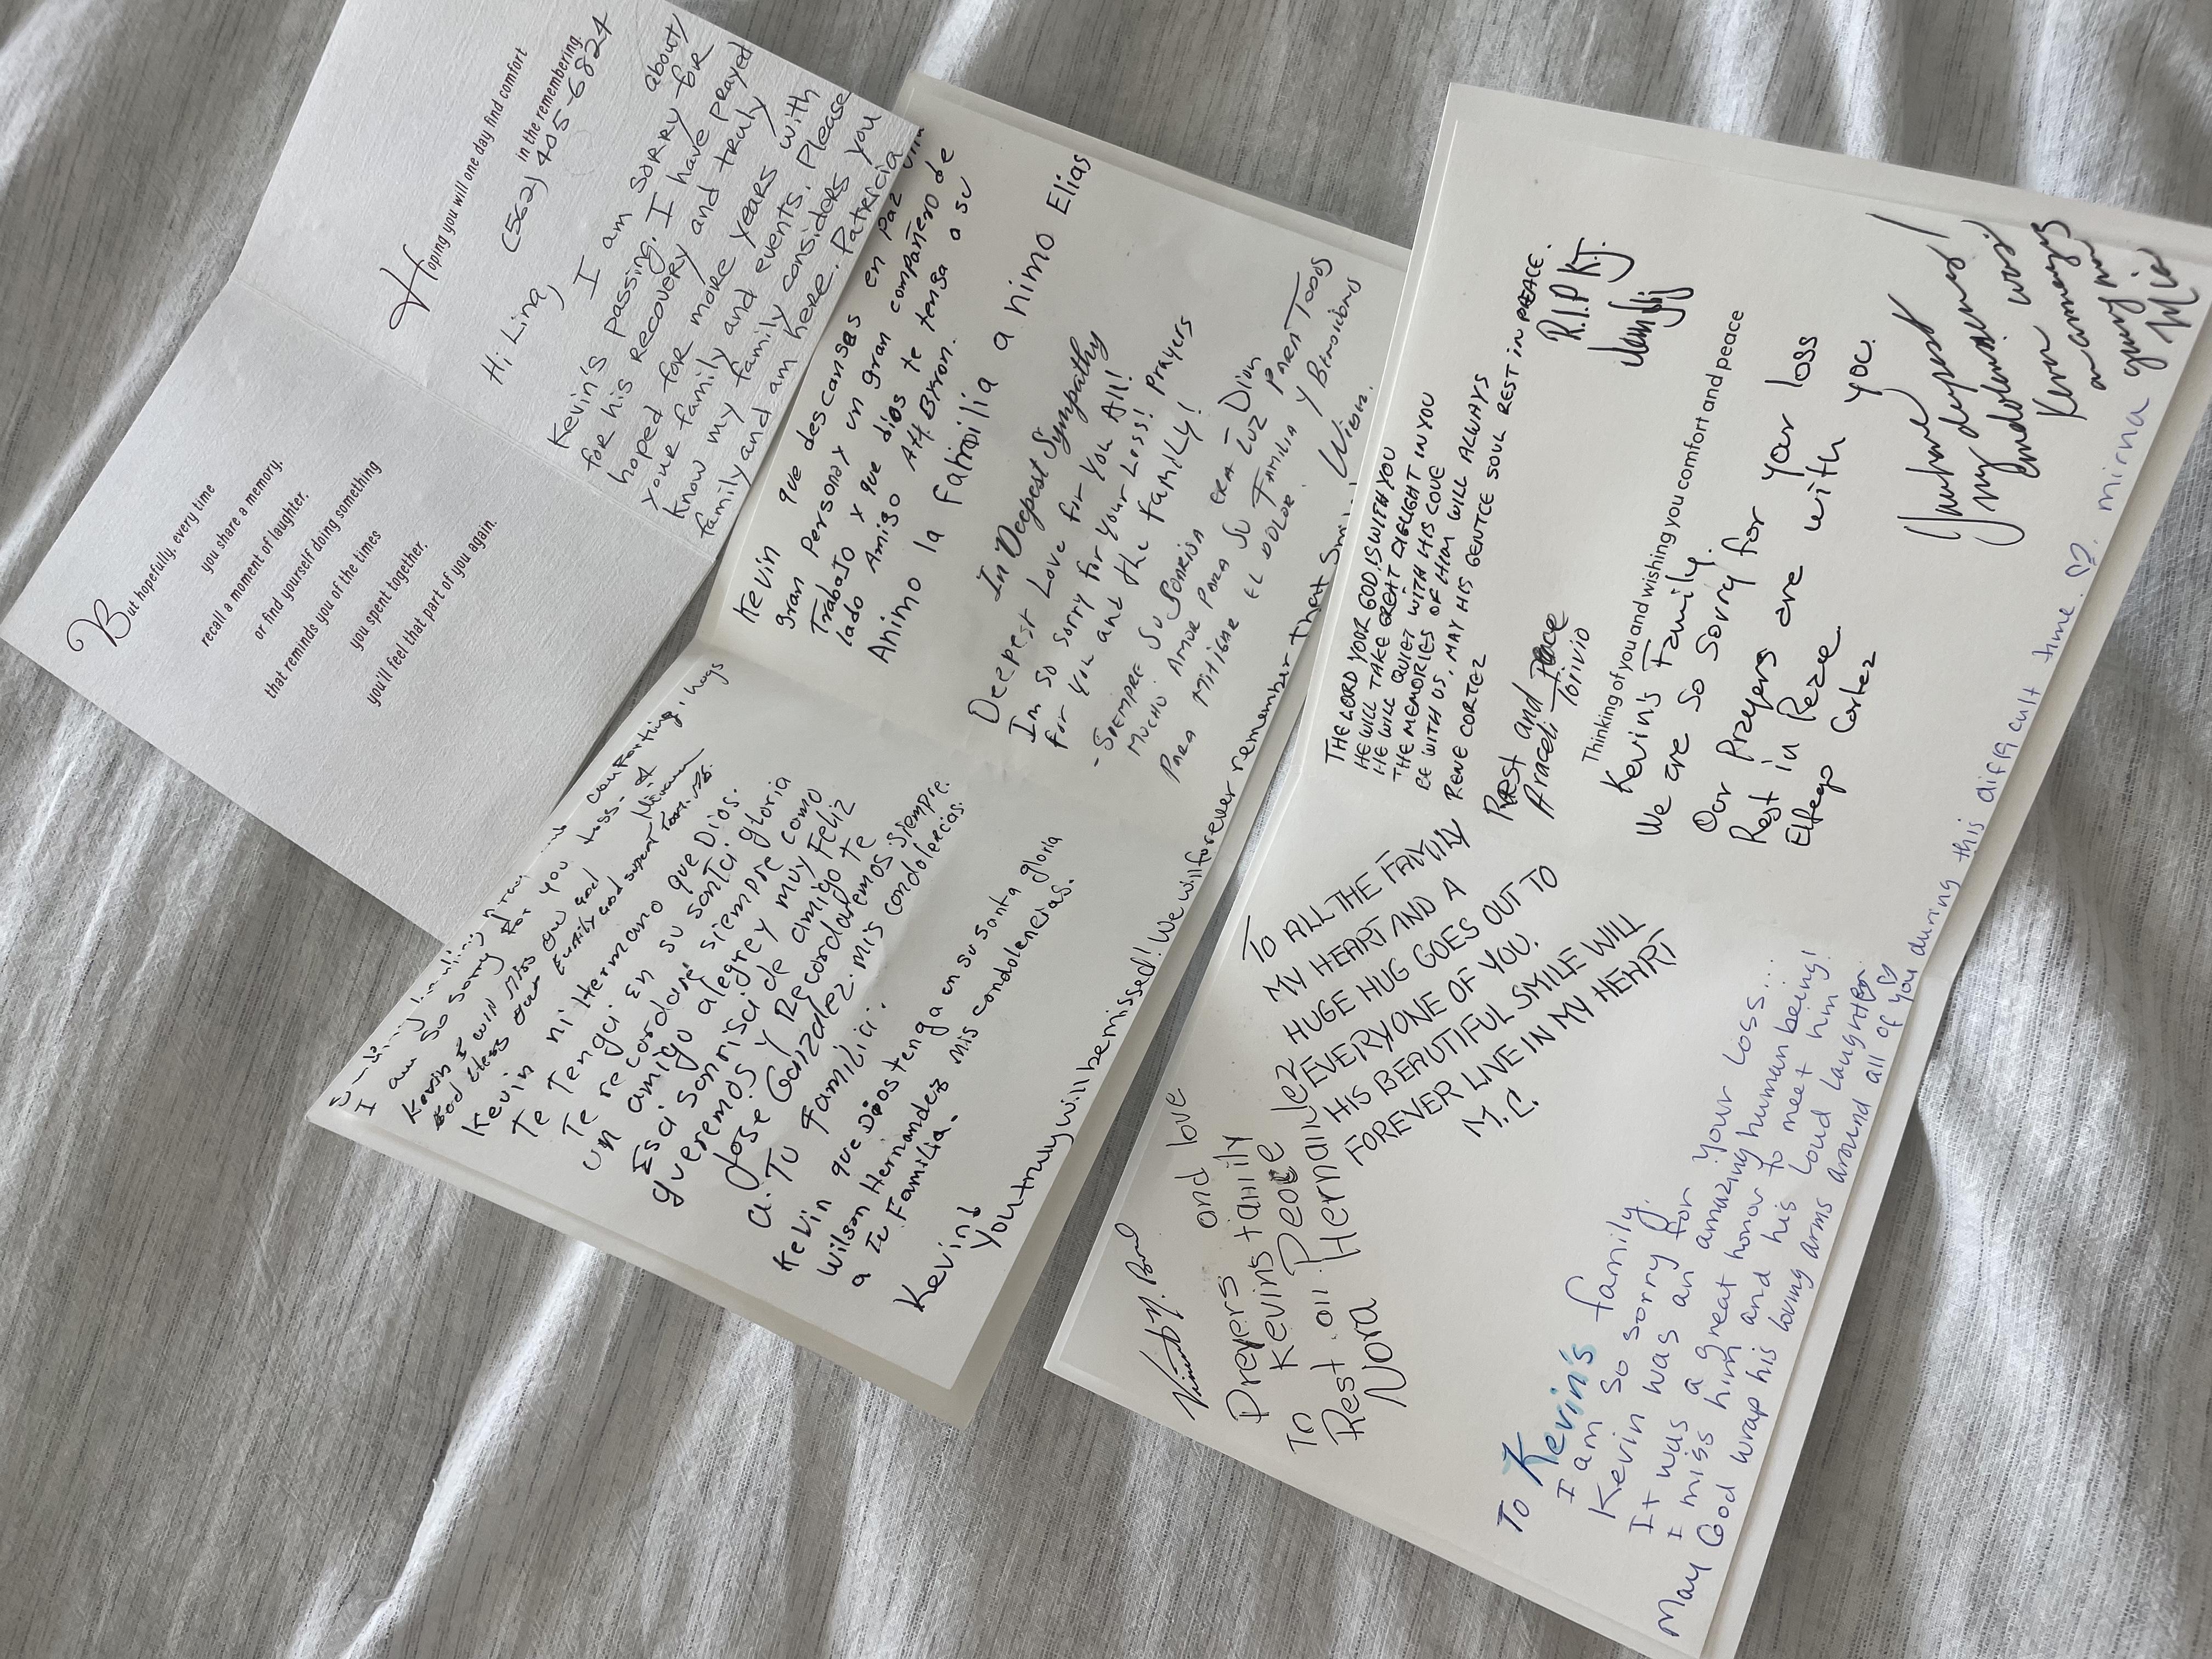 But hopefully, every time
you share a memory,
recall a moment of laughter,
or find yourself doing something
that reminds you of the times
you spent together,
you'll feel that part of you again.
Hoping you will one day find comfort
in the remembering.
(562) 405-6824
Hi Lina,
I am sorry about
Kevin's passing. I have prayed for
for his recovery and truly
hoped for more years with
your family and events. Please
know my family considers you
family and am here. Patricia
comforting, hugs
I am so sorry for you loss.
Kevin I will miss you and
God bless our family and super
Kevin mi Hermano que Dios.
Te Tenga En su santa gloria
Te recordare siempre como
un amigo alegre y muy Feliz
Esa sonrisa de amigo te
queremos y Recordaremos siempre.
Jose Gonzalez. mis condolencias.
a. Tu Familia.
Kevin que Dios tenga en su santa gloria
Wilson Hernandez mis condolencias.
a tu Familia.
Kevin!
You truly will be missed! We will forever remember that
Kevin que descanses en paz
gran Persona y un gran compañero de
Trabajo y que dios te tenga a su
lado Amigo Att. Byron.
Animo la familia animo Elias
In Deepest Sympathy
Deepest Love for you All!
Im so sorry for your Loss! Prayers
for you and the family!
- Siempre su sonrisa era luz Dion
mucho amor para su familia y
para mitigar el dolor.
para todos
Bendiciones
and love
Prayers
To Kevins family
Rest in Peace
Nora Hernandez
To ALL THE FAMILY
MY HEART AND A
HUGE HUG GOES OUT TO
EVERYONE OF YOU.
HIS BEAUTIFUL SMILE WILL
FOREVER LIVE IN MY HEART
M.C.
To Kevin's family,
I am so sorry for your loss...
Kevin was an amazing human being!
It was a great honor to meet him
I miss him and his loud laughter.
May God wrap his loving arms around all of you during this difficult time. ♡ mirna
THE LORD YOUR GOD IS WITH YOU
HE WILL TAKE GREAT DELIGHT IN YOU
HE WILL QUIET WITH HIS LOVE
THE MEMORIES OF HIM WILL ALWAYS
BE WITH US, MAY HIS GENTLE SOUL REST IN PEACE.
RENE CORTEZ
R.I.P KJ.
Rest and Peace
Araceli Torivio
Thinking of you and wishing you comfort and peace
Kevin's Family.
We are So Sorry for your loss
Our Prayers are with you.
Rest in Peace
Elfego Cortez
my deepest
condolences!
Kevin was
an amazing
young man
Mia